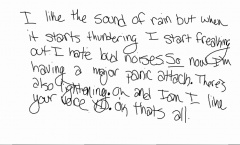 I like the sound of rain but when
it starts thundering I start freaking
out I hate loud noises So now I'm
having a major panic attach. There's
also lightening. Oh and Ian I like
your voice. oh thats all.